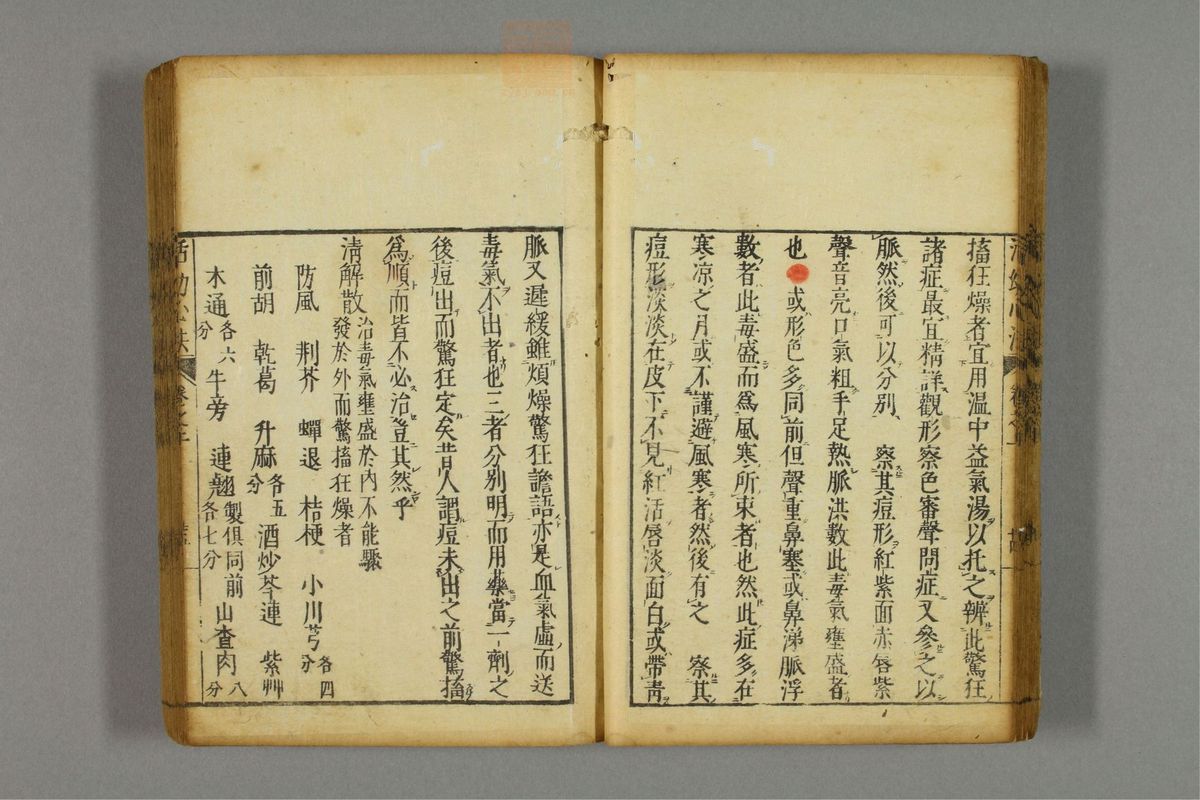 搐狂燥者宜用温中益氣湯以托之辨此驚狂
諸症最宜精詳觀形察色審聲問症又參之以
脈然後可以分別 察其痘形紅紫面赤唇紫
聲音亮口氣粗手足熱脈洪數此毒氣壅盛者
也 或形色多同前但聲重鼻塞或鼻涕脈浮
數者此毒盛而爲風寒所束者也然此症多在
寒凉之月或不謹避風寒者然後有之 察其
痘形淡淡在皮下不見紅活唇淡面白或帶靑
脈又遲緩雖煩燥驚狂譫語亦是血氣虛而送
毒氣不出者也三者分別明而用藥當一劑之
後痘出而驚狂定矣昔人謂痘未出之前驚搐
爲順而皆不必治豈其然乎
淸解散 治毒氣壅盛於内不能驟
發於外而驚搐狂燥者
防風 荆芥 蟬退 桔梗 小川芎各四分
前胡 乾葛 升麻各五分 酒炒芩連 紫艸
木通各六分 牛旁 連翹各七分 製俱同前 山査肉八分
活幼心法 卷之